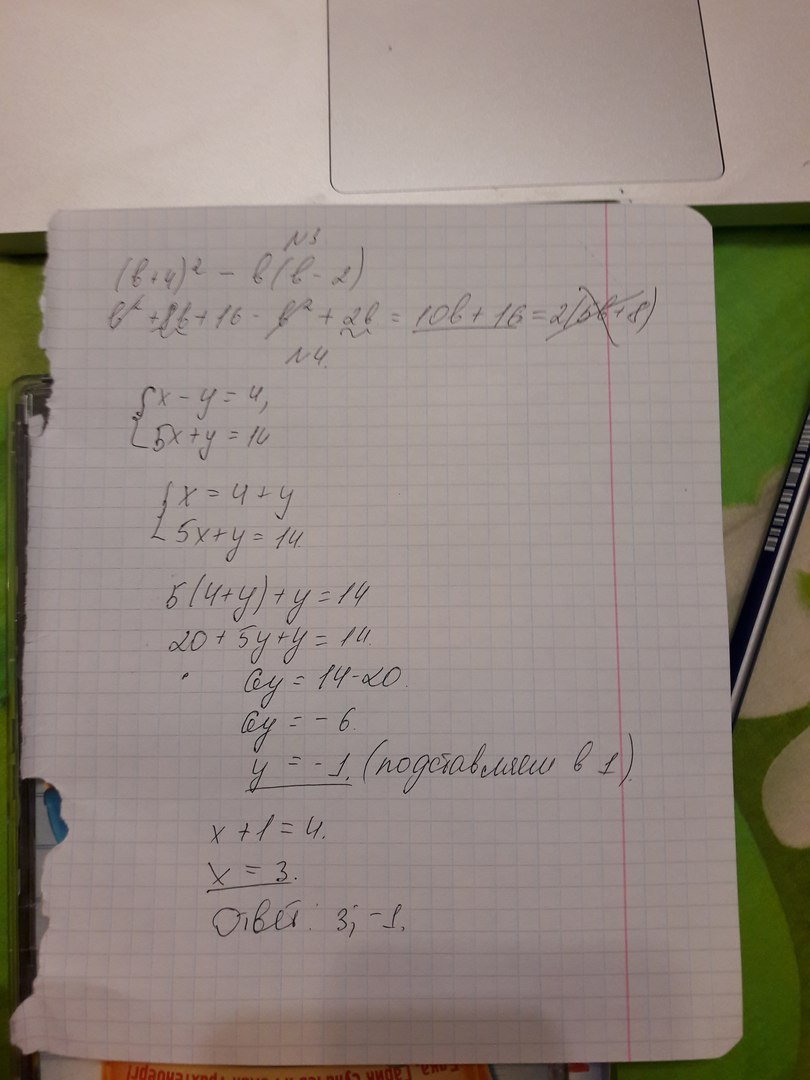 №3
(в+4)² - в(в-2)
в² + 8в + 16 - в² + 2в = 10в + 16 = 2(5в+8)
№4.
{x - y = 4,
5x + y = 14
{x = 4 + y
5x + y = 14
5(4+y) + y = 14
20 + 5y + y = 14.
6y = 14-20.
6y = - 6.
y = -1. (подставляем в 1)
x + 1 = 4.
x = 3.
Ответ: 3; -1.